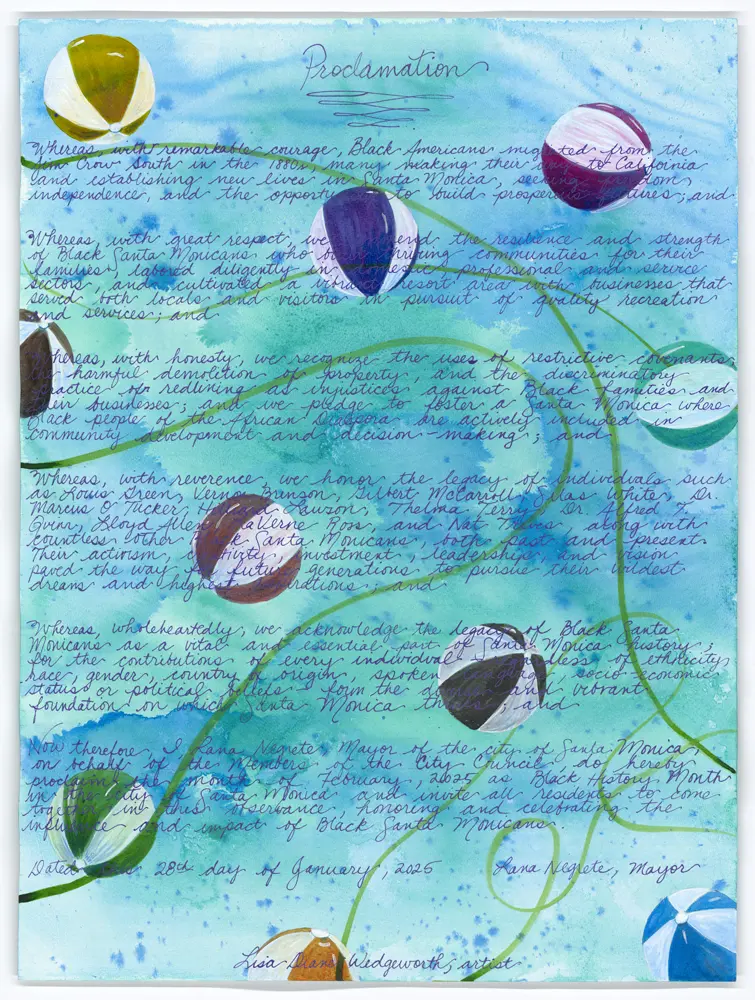 Proclamation
Whereas, with remarkable courage, Black Americans migrated from the
Jim Crow South in the 1880s, many making their way to California
and establishing new lives in Santa Monica, seeking freedom,
independence, and the opportunity to build prosperous futures; and
Whereas, with great respect, we commend the resilience and strength
of Black Santa Monicans who built thriving communities for their
families, labored diligently in domestic, professional and service
sectors, and cultivated a vibrant resort area with businesses that
served both locals and visitors in pursuit of quality recreation
and services; and
Whereas, with honesty, we recognize the uses of restrictive covenants,
harmful demolition of property, and the discriminatory
practice of redlining as injustices against Black families and
their businesses; and we pledge to foster a Santa Monica where
Black people of the African Diaspora are actively included in
community development and decision-making; and
Whereas, with reverence, we honor the legacy of individuals such
as Louis Green, Vernon Brunson, Gilbert McCarroll, Silas White, Dr.
Marcus O. Tucker, Holland Lawson, Thelma Terry, Dr. Alfred T.
Quinn, Lloyd Allen, LaVerne Ross, and Nat Trives, along with
countless other Black Santa Monicans, both past and present.
Their activism, creativity, investment, leadership, and vision
paved the way for future generations to pursue their wildest
dreams and highest aspirations; and
Whereas, wholeheartedly, we acknowledge the legacy of Black Santa
Monicans as a vital and essential part of Santa Monica history;
for the contributions of every individual, regardless of ethnicity,
race, gender, country of origin, spoken language, socio-economic
status or political beliefs form the diverse and vibrant
foundation on which Santa Monica thrives; and
Now therefore, I, Lana Negrete, Mayor of the city of Santa Monica,
on behalf of the Members of the City Council do hereby
proclaim the month of February, 2025 as Black History Month
in the City of Santa Monica and invite all residents to come
together in this observance, honoring and celebrating the
influence and impact of Black Santa Monicans.
Dated this 28th day of January, 2025 Lana Negrete, Mayor
Lisa Diane Wedgeworth, artist